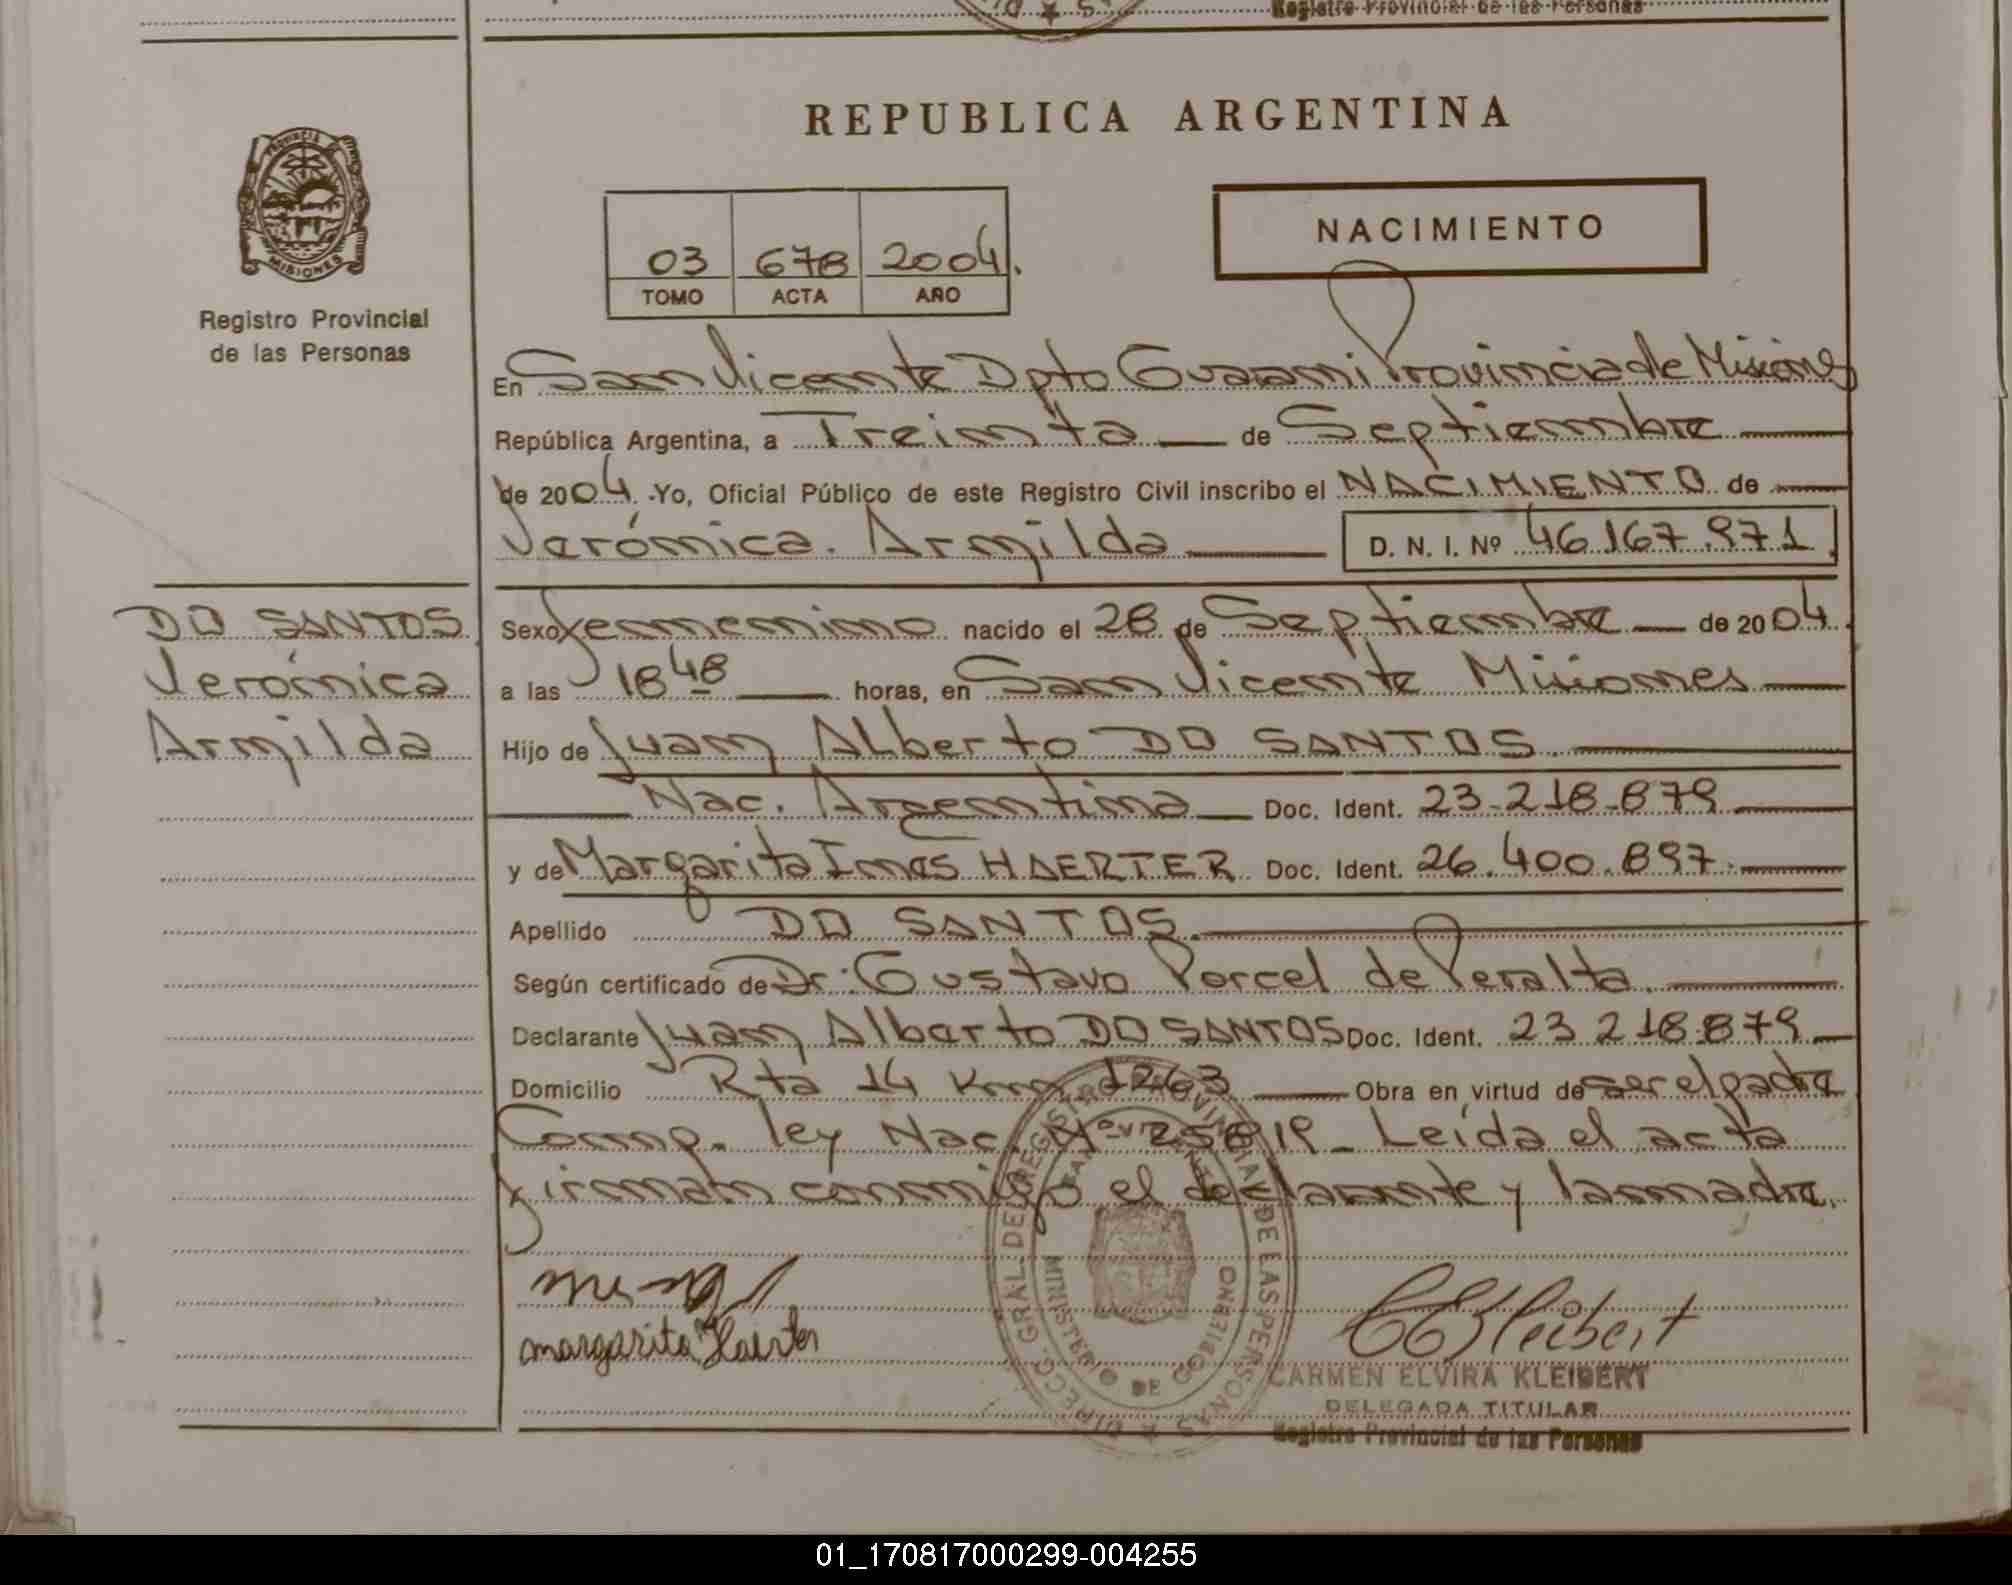 Registro Provincial de las Personas
REPUBLICA ARGENTINA
PROVINCIA DE
MISIONES
Registro Provincial
de las Personas
03 678 2004.
TOMO ACTA AÑO
NACIMIENTO
En San Vicente Dpto Guaraní Provincia de Misiones
República Argentina, a Treinta de Septiembre
de 2004. Yo, Oficial Público de este Registro Civil inscribo el NACIMIENTO de
Verónica. Armilda D. N. I. Nº 46.167.971
DO SANTOS
Verónica
Armilda
Sexo femenino nacido el 28 de Septiembre de 2004.
a las 18 48 horas, en San Vicente Misiones
Hijo de Juan Alberto DO SANTOS.
Nac. Argentina Doc. Ident. 23-218-879
y de Margarita Ines HAERTER Doc. Ident. 26.400.897.
Apellido DO SANTOS.
Según certificado de Dr: Gustavo Porcel de Peralta.
Declarante Juan Alberto DO SANTOS Doc. Ident. 23.218.879
Domicilio Rta 14 Km 1263 Obra en virtud de ser el padre
Comp. ley Nac. Nº 25819_ Leída el acta
firman conmigo el declarante y la madre.
margarita Haerter
CEKleibert
DIRECC. GRAL. DEL REGISTRO PROVINCIAL DE LAS PERSONAS
MINISTERIO DE GOBIERNO
SAN VICENTE
CARMEN ELVIRA KLEIBERT
DELEGADA TITULAR
Registro Provincial de las Personas
01_170817000299-004255